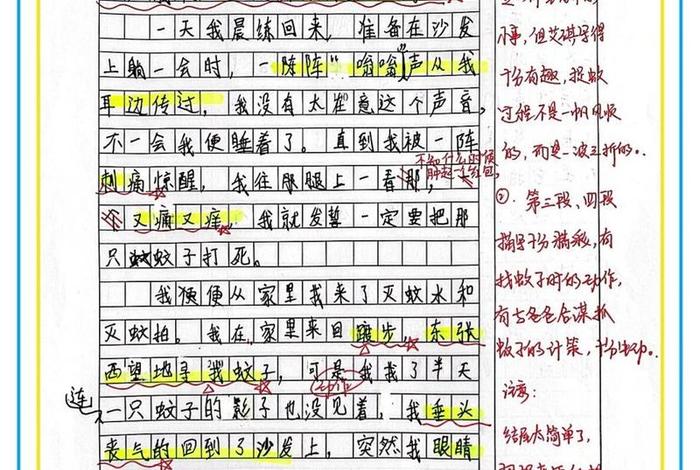 一天我晨练回来，准备在沙发
上躺一会时，一阵阵“嗡嗡”声从我
耳边传过，我没有太在意这个声音，
不一会我便睡着了。直到我被一阵
不知什么时候
肿起一个红包，
刺痛惊醒，我往那腿上一看那，
又痛又痒，我就发誓一定要把那
只蚊子打死。
我便从家里找来了灭蚊水和
灭蚊拍。我在家里来回踱步，东张
西望地寻找蚊子，可是我找了半天
动作
连
一只蚊子的影子也没见着，我垂头
丧气的回到了沙发上，突然我眼睛
小事，但艾琪写得
十分有趣，捉蚊
过程不是一帆风顺
的，而是一波三折的。
②、第三段，四段
描写十分精彩，有
找蚊子时的动作，
有与爸爸合谋抓
蚊子的计策，十分生动。
注意：
结尾太简单了，